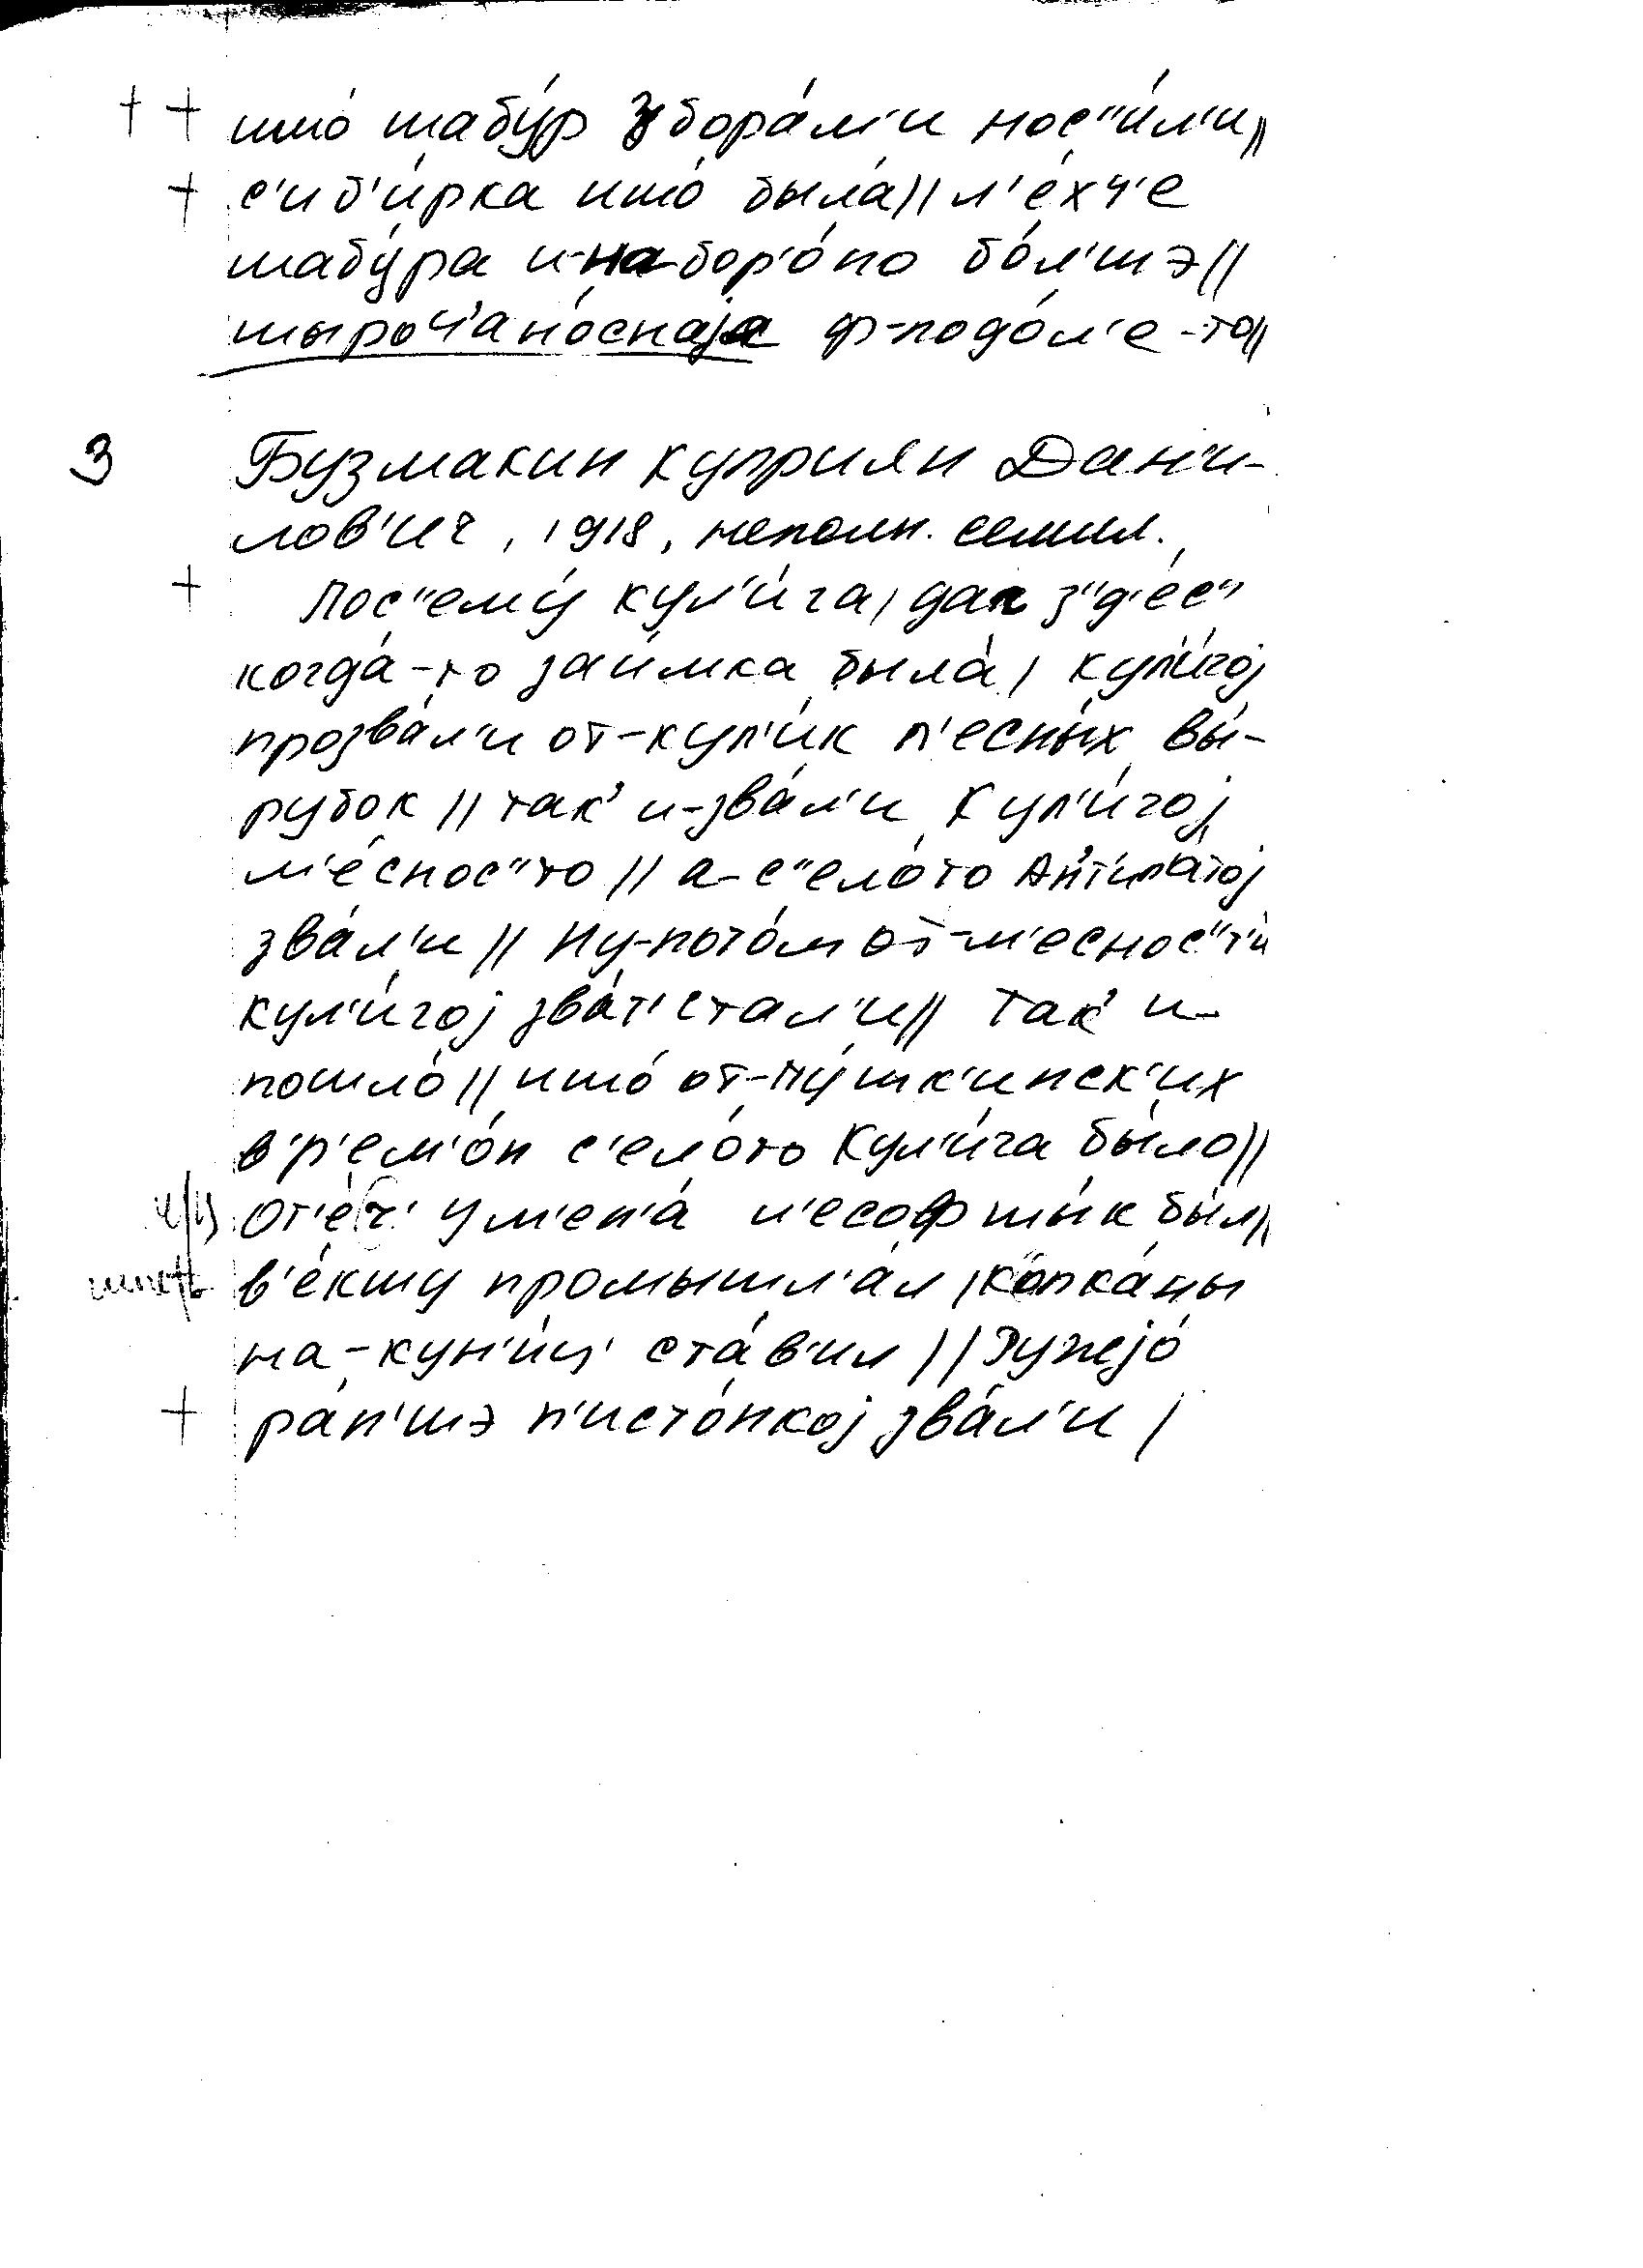 † + ишо́ шабу́р збора́м'и нос"и́л'и||
+ с'иб'и́рка ишо́ была́|| л'е́хч'е
шабу́ра и-на-бор'о́но бо́л'шэ||
шыроч'ано́снаја ф-подо́л'е-то||
3 Бузмакин Куприян Дан'и-
лов'ич, 1918, неполн. семил.
+ Пос"ему́ кул'и́га, дак з"д'е́с"
когда́-то заи́мка была́, кул'и́гој
прозва́л'и от-кул'и́к л'есны́х вы́-
рубок || так' и-зва́л'и Кул'и́гој
м'е́снос"то || а-с"ело́то Ан'т'ипатој
зва́л'и || Ну-пото́м от-м'еснос"т'и
кул'и́гој зва́т' стал'и || Так' и-
пошло́ || ишо́ от-пу́шк'инск'их
в'р'ем'о́н с'ело́то Кул'и́га бы́ло||
ч/ц от'е́ч' у м'ен'а́ л'есофшы́к бы́л||
в'е́кшу промышл'а́л, копка́ны
на-кун'и́ц' ста́в'ил || Ружејо́
+ ра́н'шэ п'исто́нкој зва́л'и |